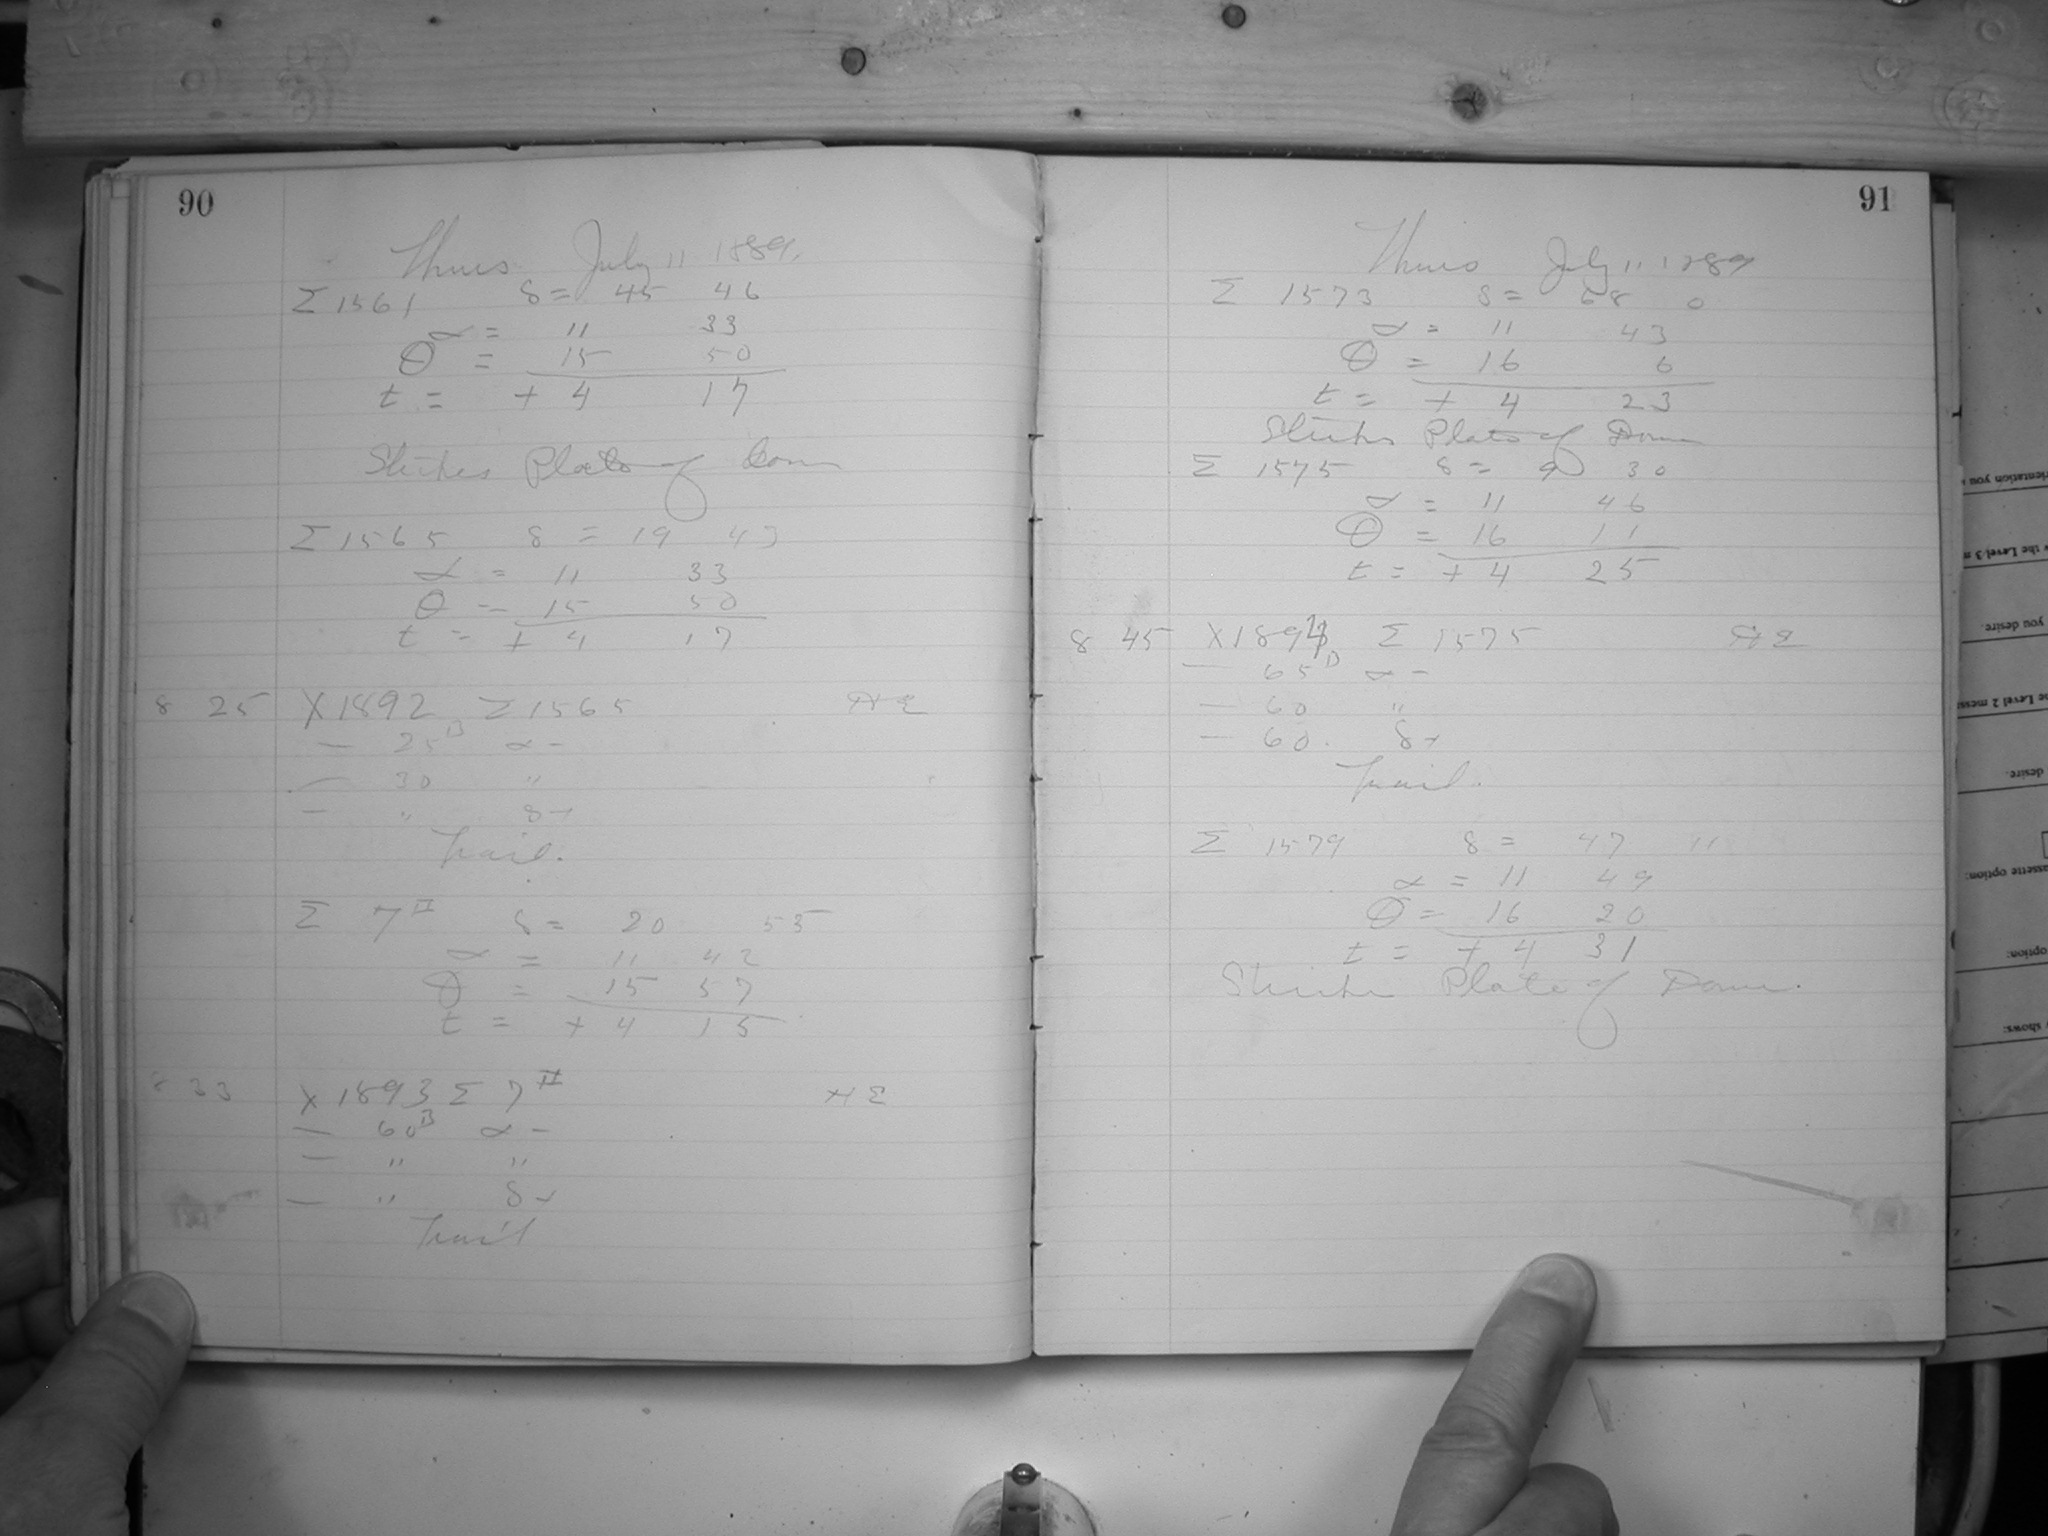 90
Thurs July 11 1889.
Σ 1561 δ = 45 46
α = 11 33
θ = 15 50
t = + 4 17
Strikes Plate of Dome
Σ 1565 δ = 19 43
α = 11 33
θ = 15 50
t = + 4 17
8 25 X 1892 Σ 1565 HE
— 25 B α -
— 30 "
— " δ +
Trail.
Σ 7 II δ = 20 55
α = 11 42
θ = 15 57
t = + 4 15
8 33 X 1893 Σ 7 II HE
— 60 B α -
— " "
— " δ +
Trail
91
Thurs July 11 1889
Σ 1573 δ = 68 0
α = 11 43
θ = 16 6
t = + 4 23
Strikes Plate of Dome
Σ 1575 δ = 9 30
α = 11 46
θ = 16 11
t = + 4 25
8 45 X 1894 Σ 1575 HE
— 65 B α -
— 60 "
— 60. δ +
Trail.
Σ 1579 δ = 47 11
α = 11 49
θ = 16 20
t = + 4 31
Strikes Plate of Dome.
you desire.
desire.
option:
shows: